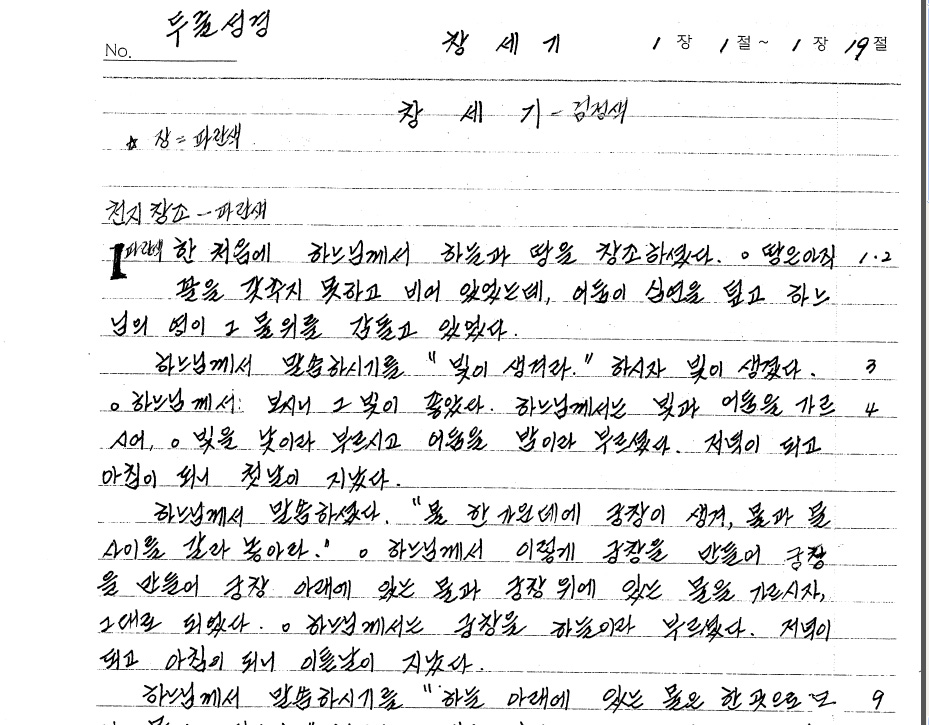 두꼴성경
No. 창 세 기 1 장 1 절 ~ 1 장 19 절
창 세 기 - 검정색
☆ 장 = 파란색
천지 창조 - 파란색
1 파란색 한 처음에 하느님께서 하늘과 땅을 창조하셨다. ㅇ 땅은아직 1·2
꼴을 갖추지 못하고 비어 있었는데, 어둠이 심연을 덮고 하느
님의 영이 그 물위를 감돌고 있었다.
하느님께서 말씀하시기를 "빛이 생겨라." 하시자 빛이 생겼다. 3
ㅇ 하느님께서: 보시니 그 빛이 좋았다. 하느님께서는 빛과 어둠을 가르 4
시어, ㅇ 빛을 낮이라 부르시고 어둠을 밤이라 부르셨다. 저녁이 되고
아침이 되니 첫날이 지났다.
하느님께서 말씀하셨다. "물 한가운데에 궁창이 생겨, 물과 물
사이를 갈라 놓아라." ㅇ 하느님께서 이렇게 궁창을 만들어 궁창
을 만들어 궁창 아래에 있는 물과 궁창 위에 있는 물을 가르시자,
그대로 되었다. ㅇ 하느님께서는 궁창을 하늘이라 부르셨다. 저녁이
되고 아침이 되니 이튿날이 지났다.
하느님께서 말씀하시기를 "하늘 아래에 있는 물은 한 곳으로 모 9